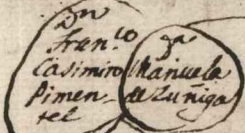 Dn
Fren.co
Casimiro
Pimen-
tel
Da
Manuela
de Zuñiga